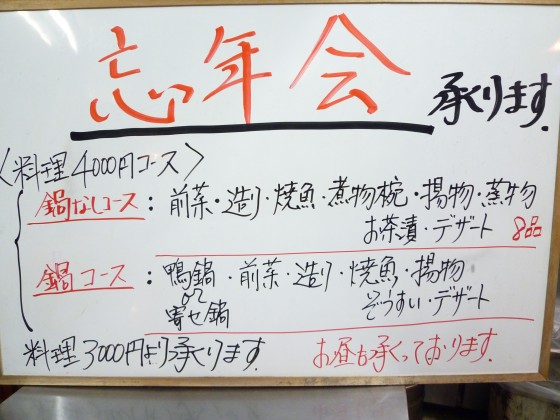 忘年会 承ります.
〈料理4000円コース〉
鍋なしコース：前菜・造り・焼魚・煮物椀・揚物・蒸物
お茶漬・デザート 8品
鍋コース：鴨鍋・前菜・造り・焼魚・揚物
or
寄せ鍋 ぞうすい・デザート
料理3000円より承ります.
お昼も承っております.